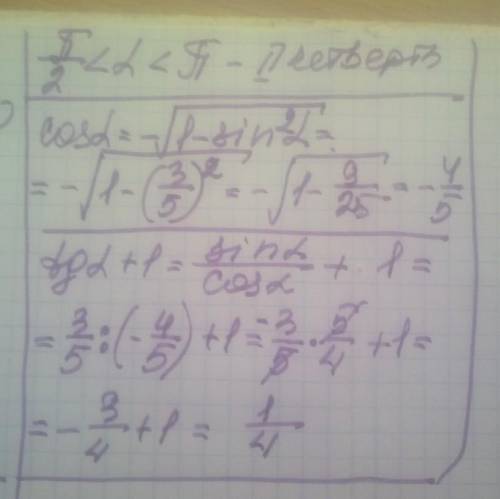 π/2 < α < π - II четверть
cosα = -√(1-sin²α) =
= -√(1-(3/5)²) = -√(1-9/25) = -4/5
tgα + 1 = sinα/cosα + 1 =
= 3/5 : (-4/5) + 1 = -3/5 · 5/4 + 1 =
= -3/4 + 1 = 1/4